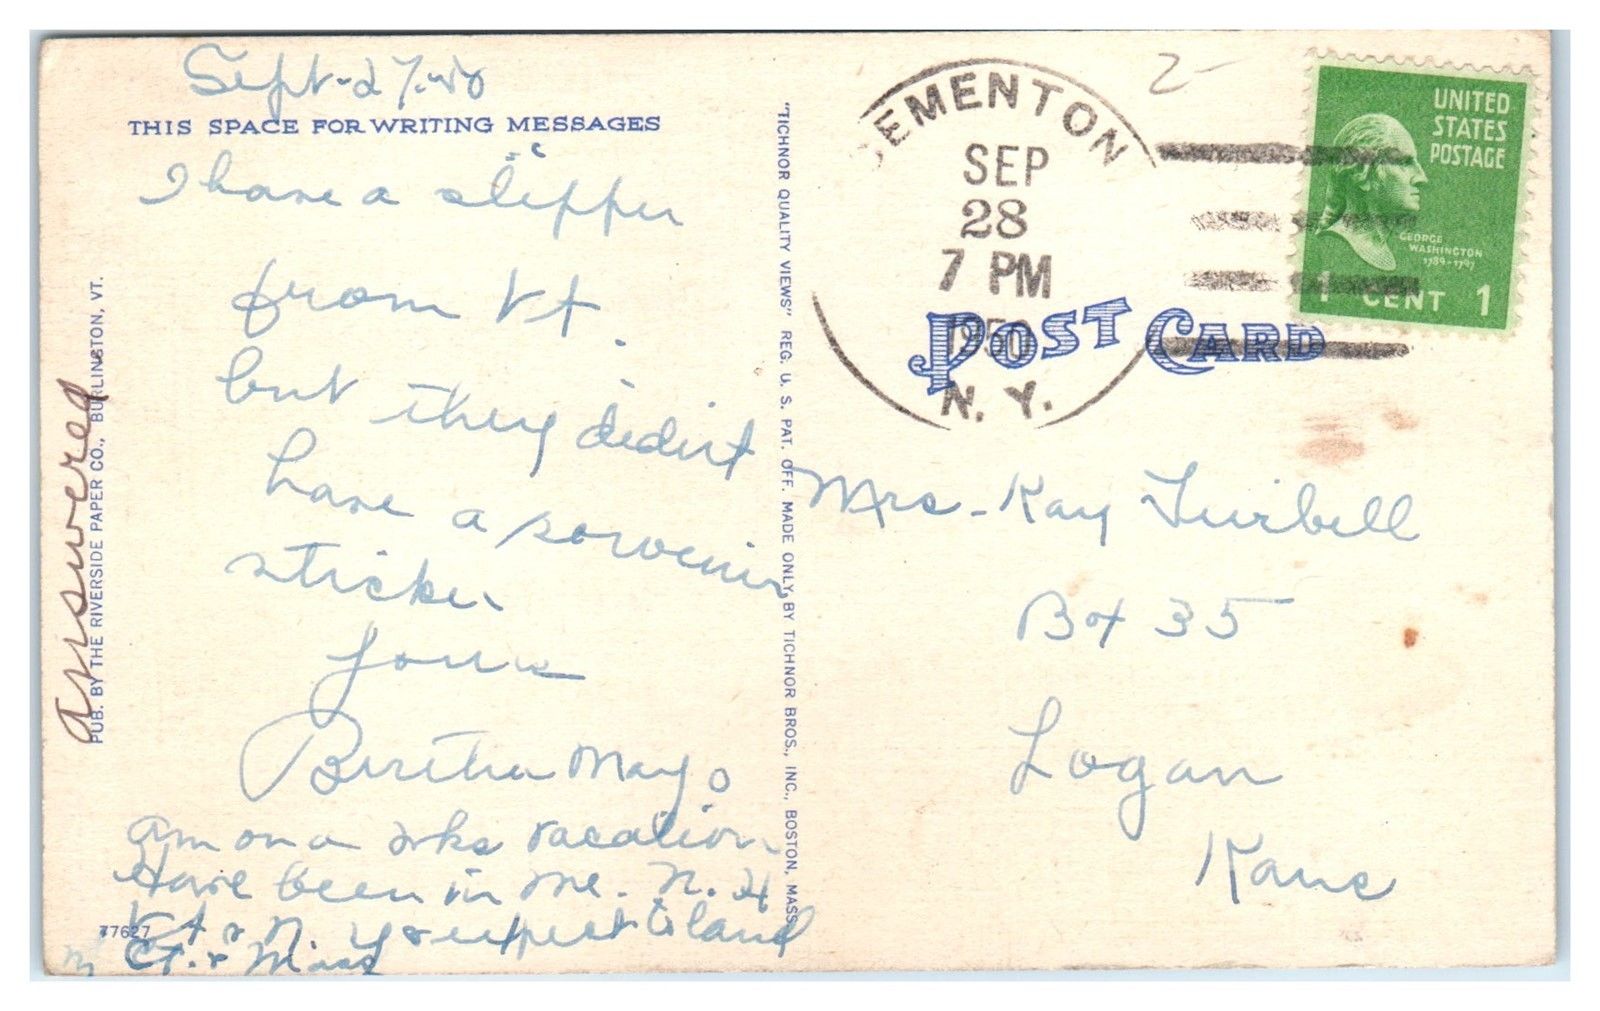 Sept-27-50
THIS SPACE FOR WRITING MESSAGES
I have a slipper
from Vt.
but they didint
have a sorvenir
sticker
Yours
Bertha Mayo
am on a wks vacation
Have been in Me. N. H
Vt & N. Y & expect to land
in Ct. & Mass
77627
answered
PUB. BY THE RIVERSIDE PAPER CO., BURLINGTON, VT.
"TICHNOR QUALITY VIEWS" REG. U. S. PAT. OFF. MADE ONLY BY TICHNOR BROS., INC., BOSTON, MASS.
2-
EMENTON
SEP
28
7 PM
1950
N. Y.
UNITED
STATES
POSTAGE
GEORGE
WASHINGTON
1789-1797
1 CENT 1
POST CARD
Mrs- Kay Turbell
Box 35
Logan
Kans